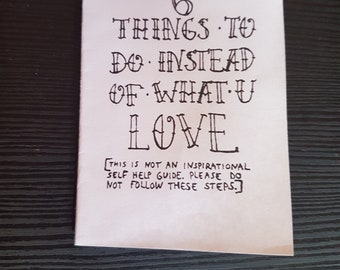 6
THINGS · TO
DO · INSTEAD
OF · WHAT · U
LOVE
[THIS IS NOT AN INSPIRATIONAL
SELF HELP GUIDE. PLEASE DO
NOT FOLLOW THESE STEPS.]